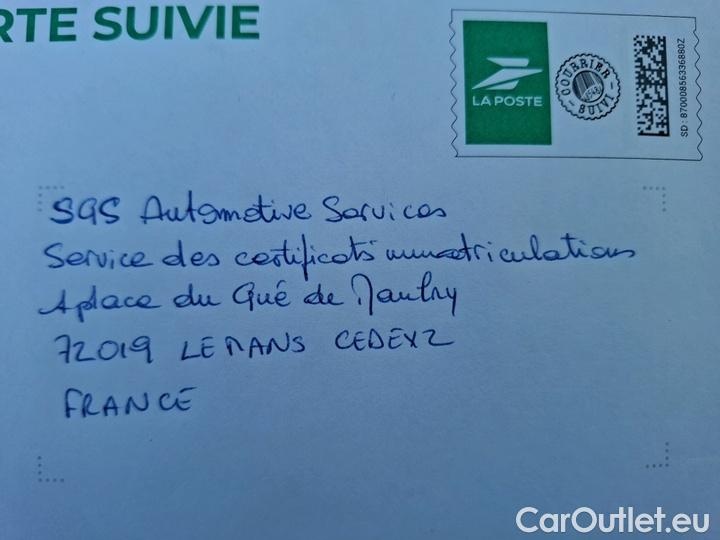 RTE SUIVIE
LA POSTE
COURRIER
SUIVI
SD : 87000856336880Z
SGS Automotive Services
Service des certificats immatriculations
1 place du Gué de Maulny
72019 LE MANS CEDEX 2
FRANCE
CarOutlet.eu